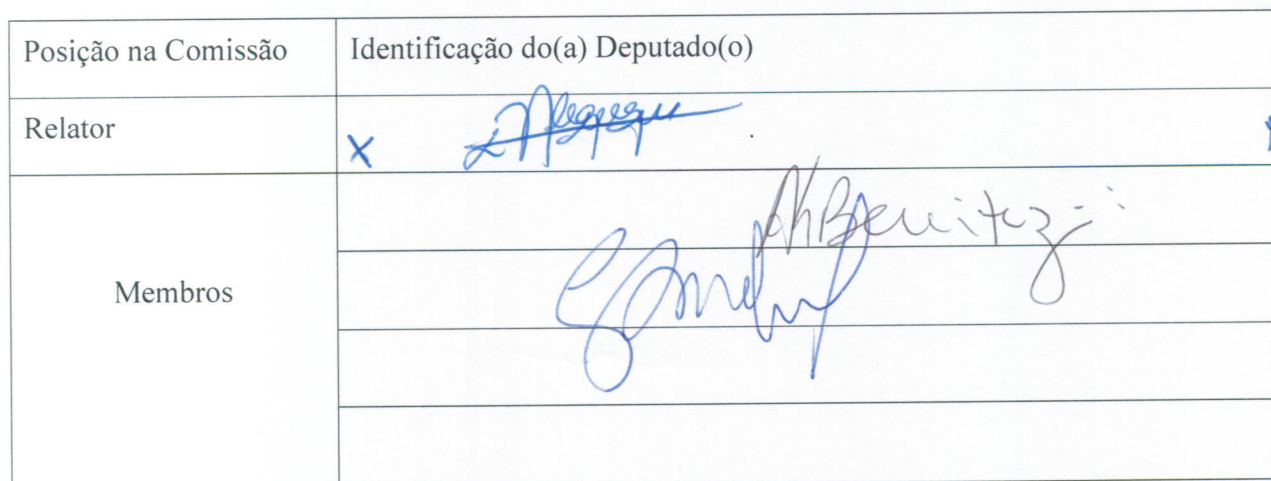 Posição na Comissão
Identificação do(a) Deputado(o)
Relator
X
Membros
Benitez